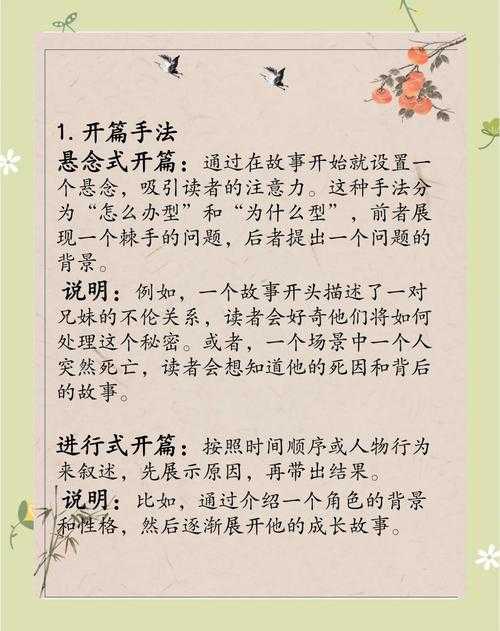 1.开篇手法
悬念式开篇：通过在故事开始就设置一
个悬念，吸引读者的注意力。这种手法分
为“怎么办型”和“为什么型”，前者展
现一个棘手的问题，后者提出一个问题的
背景。
说明：例如，一个故事开头描述了一对
兄妹的不伦关系，读者会好奇他们将如何
处理这个秘密。或者，一个场景中一个人
突然死亡，读者会想知道他的死因和背后
的故事。
进行式开篇：按照时间顺序或人物行为
来叙述，先展示原因，再带出结果。
说明：比如，通过介绍一个角色的背景
和性格，然后逐渐展开他的成长故事。